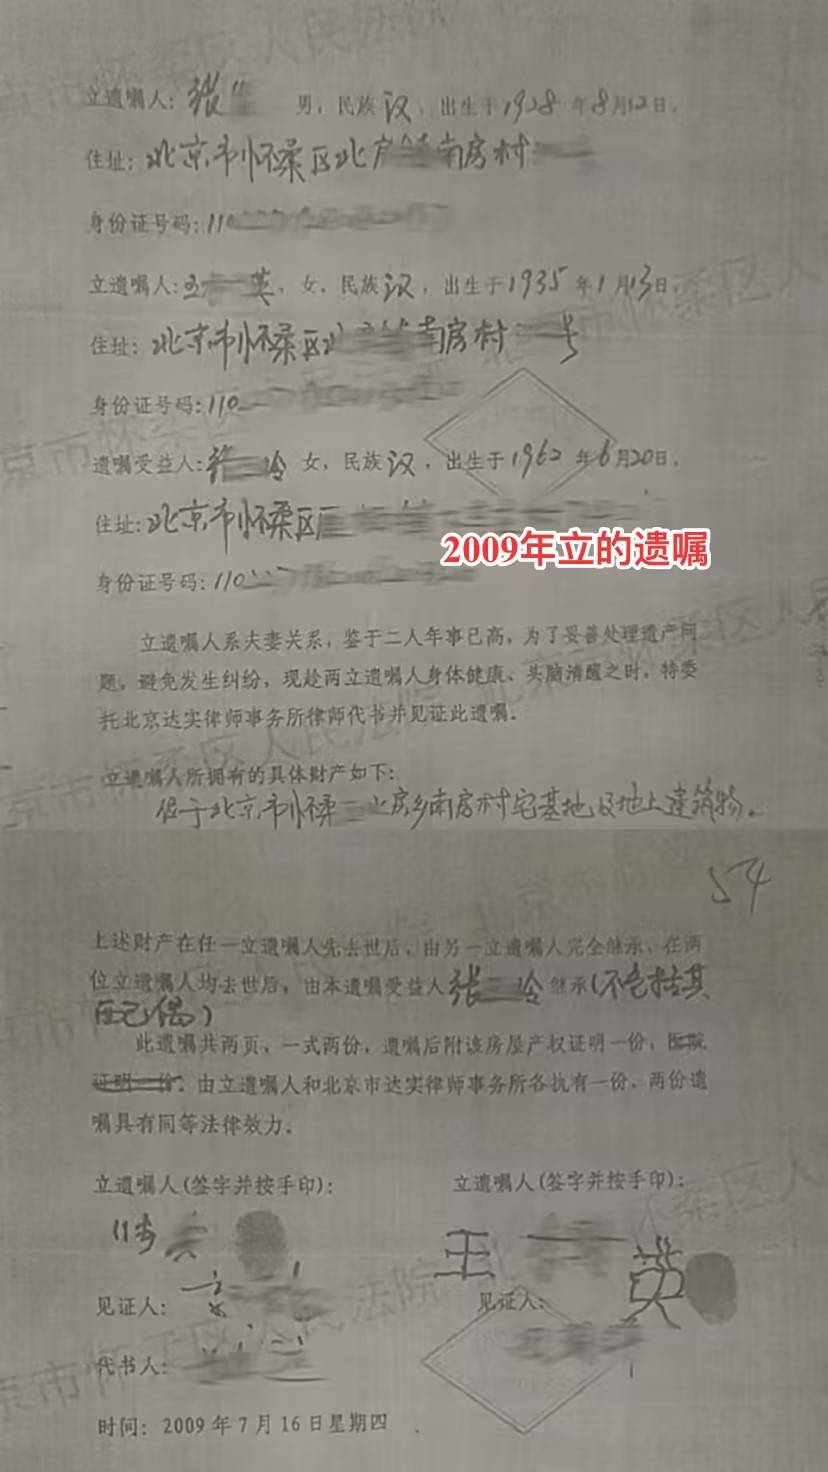 立遗嘱人：张 男，民族汉，出生于1928年8月12日，
住址：北京市怀柔区北房 南房村
身份证号码：110
立遗嘱人：王 英，女，民族汉，出生于1935年1月13日，
住址：北京市怀柔区北 南房村 号
身份证号码：110
遗嘱受益人：张 玲 女，民族汉，出生于1962年6月20日，
住址：北京市怀柔区
2009年立的遗嘱
身份证号码：110
立遗嘱人系夫妻关系，鉴于二人年事已高，为了妥善处理遗产问
题，避免发生纠纷，现趁两立遗嘱人身体健康、头脑清醒之时，特委
托北京达实律师事务所律师代书并见证此遗嘱。
立遗嘱人所拥有的具体财产如下：
位于北京市怀柔 北房乡南房村宅基地及地上建筑物。
54
上述财产在任一立遗嘱人先去世后，由另一立遗嘱人完全继承，在两
位立遗嘱人均去世后，由本遗嘱受益人张 玲继承（不包括其
配偶）
此遗嘱共两页，一式两份，遗嘱后附该房屋产权证明一份，医院
证明一份。由立遗嘱人和北京市达实律师事务所各执有一份，两份遗
嘱具有同等法律效力。
立遗嘱人（签字并按手印）： 立遗嘱人（签字并按手印）：
王 英
见证人： 见证人：
代书人：
时间：2009年7月16日星期四